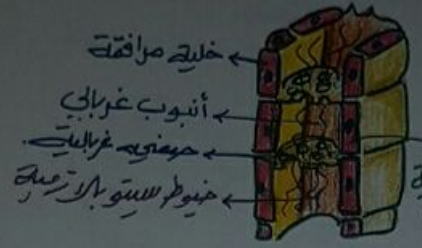 خلية مرافقة
أنبوب غربالي
صفيحة غربالية.
خيوط سيتوبلازمية
ة